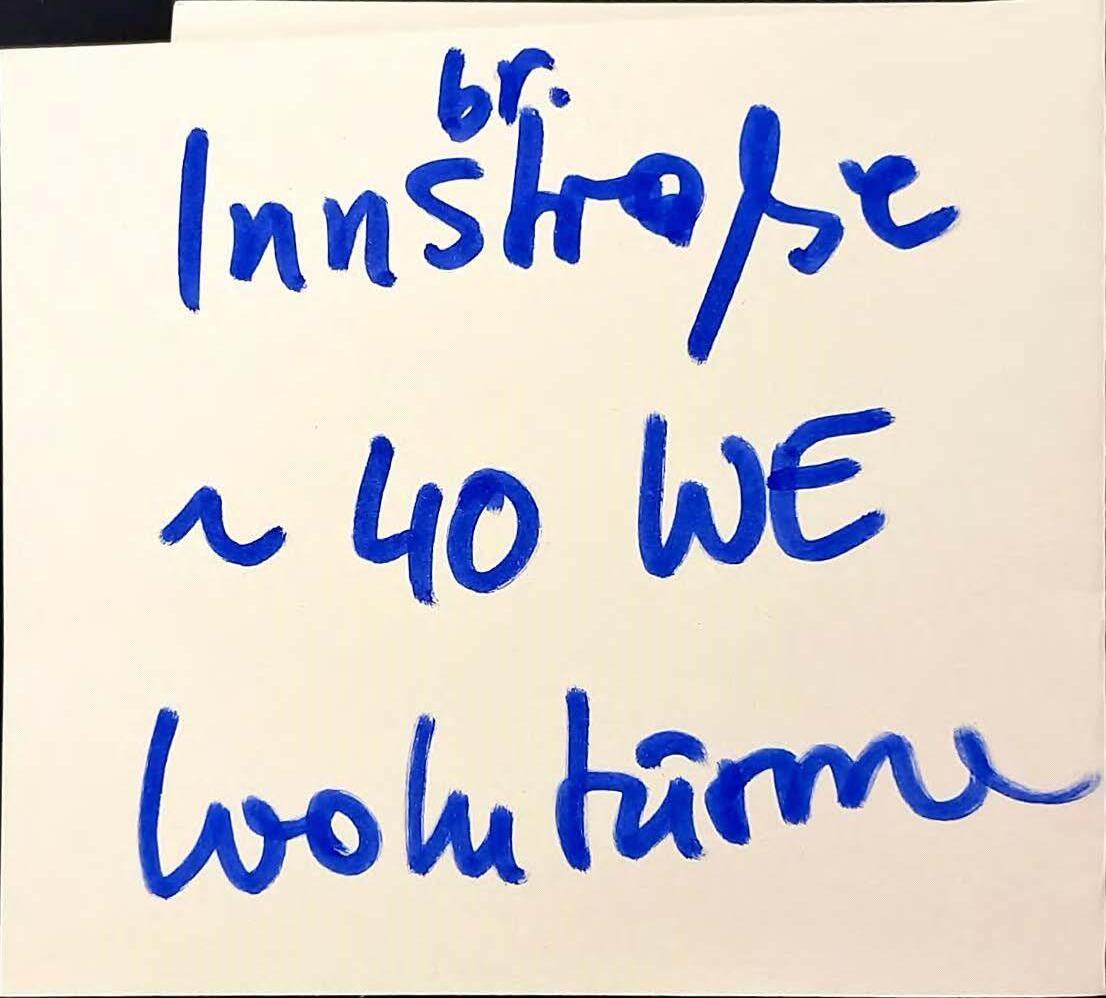 br.
Innstraße
~ 40 WE
Wohntürme